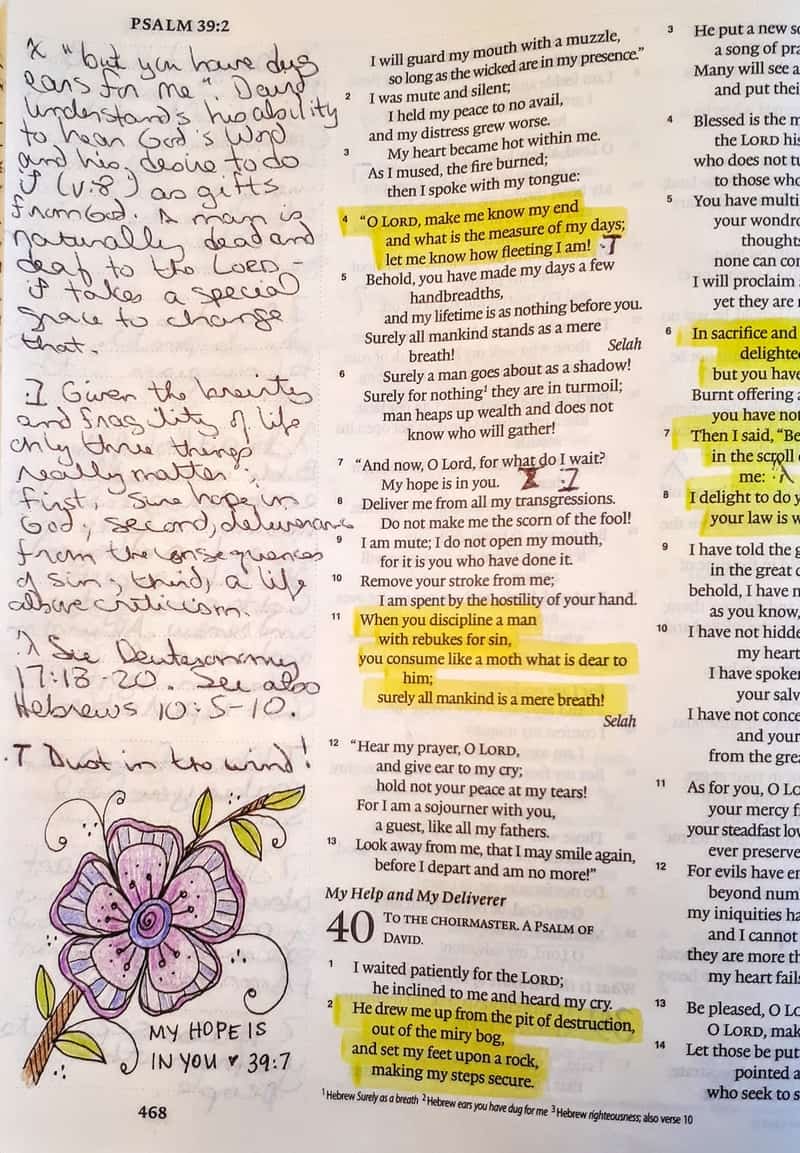 PSALM 39:2
X "but you have dug
ears for me". David
understands his ability
to hear God's Word
and his desire to do
it (v:8) as gifts
from God. A man is
naturally dead and
deaf to the LORD -
it takes a special
grace to change
that.
:I Given the brevity
and fragility of life
only three things
really matter";
first, "sure hope in
God; second, deliverance
from the consequences
of sin; third, a life
above criticism.
:λ See Deuteronomy
17:18-20. See also
Hebrews 10:5-10.
·T Dust in the wind!
MY HOPE IS
IN YOU ♥ 39:7
468
I will guard my mouth with a muzzle,
so long as the wicked are in my presence."
2 I was mute and silent;
I held my peace to no avail,
and my distress grew worse.
3 My heart became hot within me.
As I mused, the fire burned;
then I spoke with my tongue:
4 "O LORD, make me know my end
and what is the measure of my days;
let me know how fleeting I am! ·T
5 Behold, you have made my days a few
handbreadths,
and my lifetime is as nothing before you.
Surely all mankind stands as a mere
breath! Selah
6 Surely a man goes about as a shadow!
Surely for nothing¹ they are in turmoil;
man heaps up wealth and does not
know who will gather!
7 "And now, O Lord, for what do I wait?
My hope is in you. I :I
8 Deliver me from all my transgressions.
Do not make me the scorn of the fool!
9 I am mute; I do not open my mouth,
for it is you who have done it.
10 Remove your stroke from me;
I am spent by the hostility of your hand.
11 When you discipline a man
with rebukes for sin,
you consume like a moth what is dear to
him;
surely all mankind is a mere breath!
Selah
12 "Hear my prayer, O LORD,
and give ear to my cry;
hold not your peace at my tears!
For I am a sojourner with you,
a guest, like all my fathers.
13 Look away from me, that I may smile again,
before I depart and am no more!"
My Help and My Deliverer
40 TO THE CHOIRMASTER. A PSALM OF
DAVID.
1 I waited patiently for the LORD;
he inclined to me and heard my cry.
2 He drew me up from the pit of destruction,
out of the miry bog,
and set my feet upon a rock,
making my steps secure.
3 He put a new s
a song of pra
Many will see a
and put thei
4 Blessed is the m
the LORD his
who does not tu
to those who
5 You have multi
your wondro
thoughts
none can con
I will proclaim
yet they are
6 In sacrifice and
delighted
but you have
Burnt offering a
you have not
7 Then I said, "Be
in the scroll
me: ·λ
8 I delight to do y
your law is w
9 I have told the g
in the great
behold, I have n
as you know,
10 I have not hidde
my heart
I have spoken
your salv
I have not conce
and your
from the grea
11 As for you, O LO
your mercy f
your steadfast lov
ever preserve
12 For evils have en
beyond num
my iniquities ha
and I cannot
they are more th
my heart fails
13 Be pleased, O LO
O LORD, mak
14 Let those be put
pointed a
who seek to s
¹ Hebrew Surely as a breath ² Hebrew ears you have dug for me ³ Hebrew righteousness; also verse 10